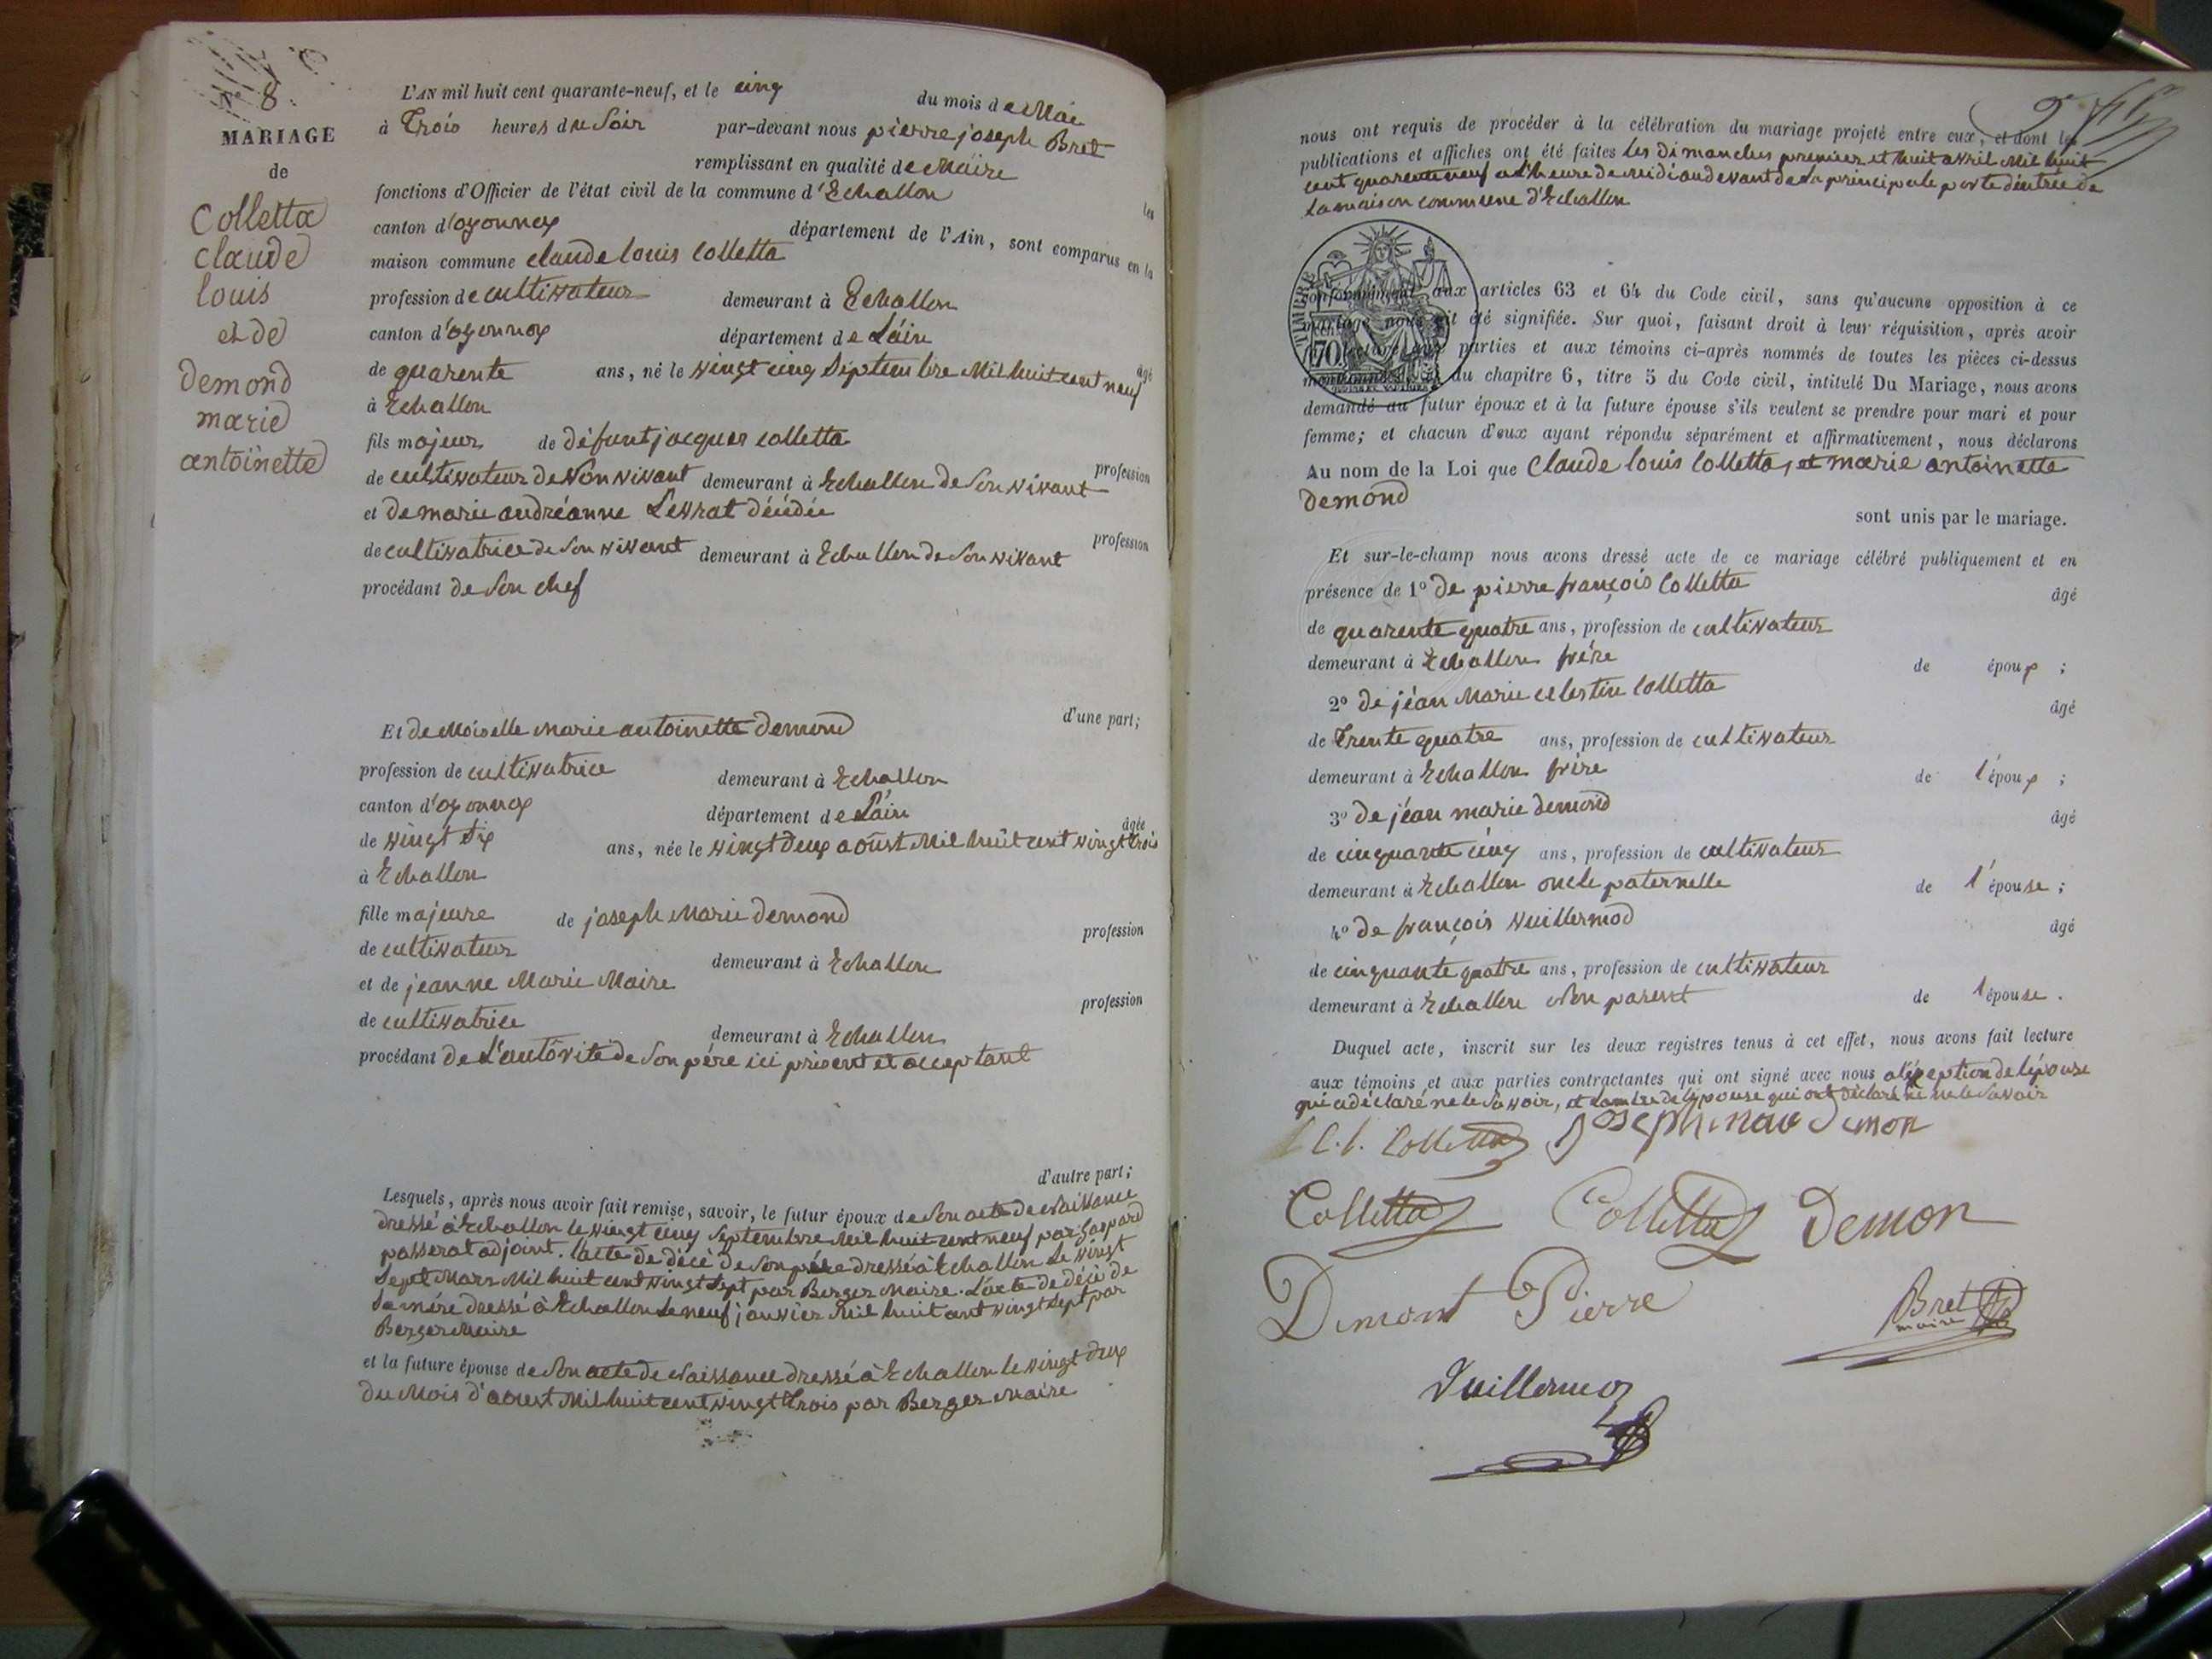 N° 8.
MARIAGE
de
Colletta
claude
louis
et de
demond
marie
antoinette
L'AN mil huit cent quarante-neuf, et le cinq du mois de Mai
à Trois heures du Soir par-devant nous pierre joseph Bret
remplissant en qualité de Maire les
fonctions d'Officier de l'état civil de la commune d'Echallon
canton d'oyonnax département de l'Ain, sont comparus en la
maison commune claude louis Colletta
profession de cultivateur demeurant à Echallon
canton d'oyonnax département de L'ain âgé
de quarente ans, né le vingt cinq Septembre Mil huit cent neuf
à Echallon
fils majeur de défunt jacques colletta profession
de cultivateur de Son vivant demeurant à Echallon de Son vivant
et de marie andréanne Levrat décédée profession
de cultivatrice de Son vivant demeurant à Echallon de Son vivant
procédant de Son chef
d'une part;
Et de Moiselle Marie antoinette demond
profession de cultivatrice demeurant à Echallon
canton d'oyonnax département de L'ain âgée
de vingt six ans, née le vingt deux aoust Mil huit cent vingt trois
à Echallon
fille majeure de joseph Marie demond profession
de cultivateur demeurant à Echallon
et de jeanne Marie Maire profession
de cultivatrice demeurant à Echallon
procédant de L'autorité de Son père ici présent et acceptant
d'autre part;
Lesquels, après nous avoir fait remise, savoir, le futur époux de Son acte de Naissance
dressé à Echallon le vingt cinq Septembre Mil huit cent neuf par Gaspard
passerat adjoint. l'acte de décè de Son père dressé à Echallon Le vingt
Sept Mars Mil huit cent vingt Sept par Berger Maire. L'acte de décè de
Sa mère dressé à Echallon Le neuf janvier Mil huit cent vingt Sept par
Berger Maire
et la future épouse de Son acte de Naissance dressé à Echallon le vingt deux
du Mois d'aoust Mil huit cent vingt Trois par Berger Maire
nous ont requis de procéder à la célébration du mariage projeté entre eux, et dont les
publications et affiches ont été faites Les dimanches premier et huit avril Mil huit
cent quarente neuf a L'heure de Midi au devant de La principale porte d'entrée de
La maison commune d'Echallon
TIMBRE
70
conformément aux articles 63 et 64 du Code civil, sans qu'aucune opposition à ce
mariage nous ait été signifiée. Sur quoi, faisant droit à leur réquisition, après avoir
lecture aux parties et aux témoins ci-après nommés de toutes les pièces ci-dessus
mentionnées, et du chapitre 6, titre 5 du Code civil, intitulé Du Mariage, nous avons
demandé au futur époux et à la future épouse s'ils veulent se prendre pour mari et pour
femme; et chacun d'eux ayant répondu séparément et affirmativement, nous déclarons
Au nom de la Loi que Claude louis Colletta, et marie antoinette
demond
sont unis par le mariage.
Et sur-le-champ nous avons dressé acte de ce mariage célébré publiquement et en
présence de 1° de pierre françois Colletta âgé
de quarente quatre ans, profession de cultivateur
demeurant à Echallon frère de époux ;
2° de jéan Marie celestin Colletta âgé
de Trente quatre ans, profession de cultivateur
demeurant à Echallon frère de l'époux ;
3° de jéan marie demond âgé
de cinquante cinq ans, profession de cultivateur
demeurant à Echallon oncle paternelle de l'épouse ;
4° de françois Vuillermod âgé
de cinquante quatre ans, profession de cultivateur
demeurant à Echallon Non parent de l'épouse.
Duquel acte, inscrit sur les deux registres tenus à cet effet, nous avons fait lecture
aux témoins et aux parties contractantes qui ont signé avec nous a l'exeption de l'épouse
qui a déclaré ne le Savoir, et La mère de l'épouse qui ont déclaré ne le Savoir
C. l. Colletta Joseph marie demon
Colletta Colletta Demon
Dimont Pierre Bret
maire
Vuillermoz